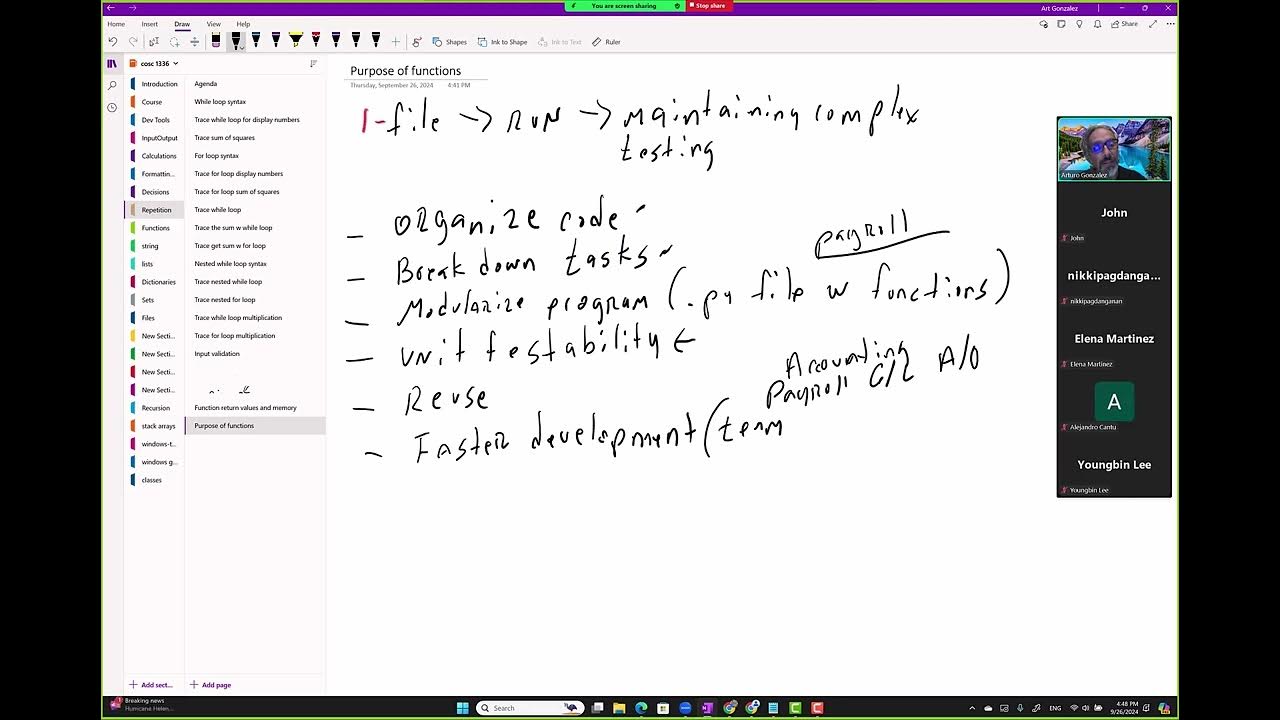 You are screen sharing
Stop share
Art Gonzalez
Home Insert Draw View Help
Share
Shapes
Ink to Shape
Ink to Text
Ruler
cosc 1336
Introduction
Course
Dev Tools
InputOutput
Calculations
Formattin...
Decisions
Repetition
Functions
string
lists
Dictionaries
Sets
Files
New Secti...
New Secti...
New Secti...
New Secti...
Recursion
stack arrays
windows-t...
windows g...
classes
Add sect...
Agenda
While loop syntax
Trace while loop for display numbers
Trace sum of squares
For loop syntax
Trace for loop display numbers
Trace for loop sum of squares
Trace while loop
Trace the sum w while loop
Trace get sum w for loop
Nested while loop syntax
Trace nested while loop
Trace nested for loop
Trace while loop multiplication
Trace for loop multiplication
Input validation
Function return values and memory
Purpose of functions
Add page
Purpose of functions
Thursday, September 26, 2024 4:41 PM
1-file -> RUN -> maintaining complex
testing
- organize code
- Break down tasks
payroll
- Modularize program (.py file w functions)
- Unit testability ←
Accounting
Payroll G/L A/O
- Reuse
- Faster development (team
Arturo Gonzalez
John
John
nikkipagdanga...
nikkipagdanganan
Elena Martinez
Elena Martinez
A
Alejandro Cantu
Youngbin Lee
Youngbin Lee
Breaking news
Hurricane Helen...
Search
ENG
4:48 PM
9/26/2024